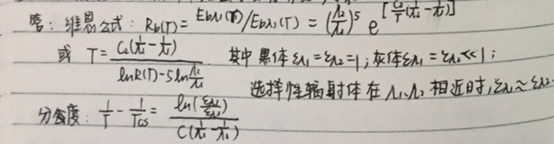 答：维恩公式：Rb(T) = Ebλ₁(T)/Ebλ₂(T) = (λ₂/λ₁)⁵ e^[C₂/T(1/λ₂-1/λ₁)]
或 T = C₂(1/λ₂-1/λ₁)/(lnR(T)-5lnλ₂/λ₁) 其中黑体ελ₁=ελ₂=1；灰体ελ₁=ελ₂≪1；
选择性辐射体在λ₁、λ₂相近时，ελ₁≈ελ₂.
：1/T - 1/Tcs = ln(ελ₁/ελ₂)/C(1/λ₁-1/λ₂)